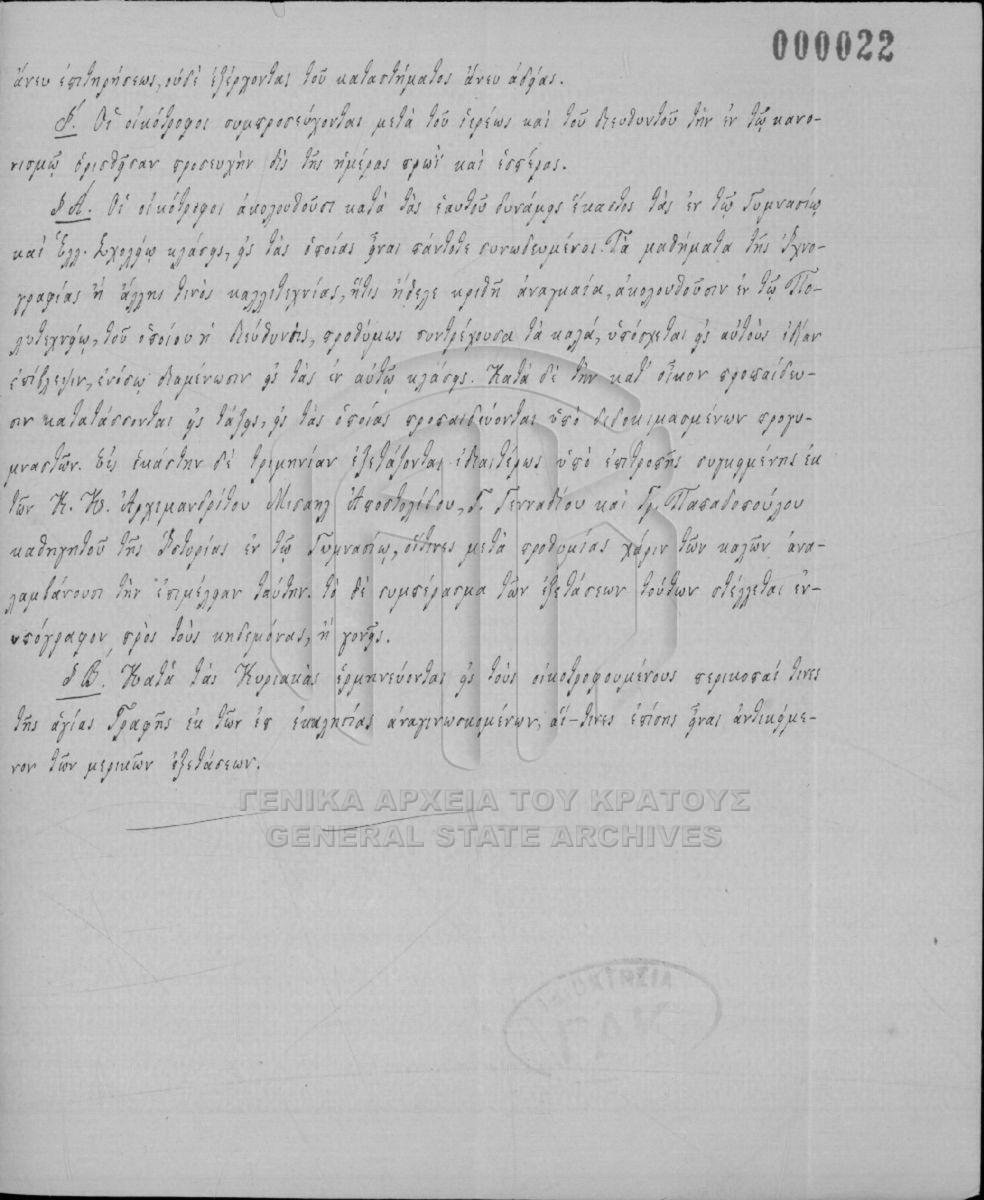 000022
ἄνευ ἐπιτηρήσεως, οὐδὲ ἐξέρχονται τοῦ καταστήματος ἄνευ ἀδείας.
Ι. Οἱ οἰκότροφοι συμπροσεύχονται μετὰ τοῦ ἱερέως καὶ τοῦ διευθυντοῦ τὴν ἐν τῷ κανο-
νισμῷ ὁρισθεῖσαν προσευχὴν δὶς τῆς ἡμέρας πρωῒ καὶ ἑσπέρας.
ΙΑ. Οἱ οἰκότροφοι ἀκολουθοῦσι κατὰ τὰς ἑαυτοῦ δυνάμεις ἕκαστος τὰς ἐν τῷ Γυμνασίῳ
καὶ Ἑλλ. Σχολείῳ κλάσεις, εἰς τὰς ὁποίας εἶναι πάντοτε συνωδευμένοι. Τὰ μαθήματα τῆς ἰχνο-
γραφίας ἢ ἄλλης τινὸς καλλιτεχνίας, ἥτις ἤθελε κριθῆ ἀναγκαία, ἀκολουθοῦσιν ἐν τῷ Πο-
λυτεχνείῳ, τοῦ ὁποίου ἡ διεύθυνσις, προθύμως συντρέχουσα τὰ καλά, ὑπόσχεται εἰς αὐτοὺς ἰδίαν
ἐπίβλεψιν, ἐνόσῳ διαμένωσιν εἰς τὰς ἐν αὐτῷ κλάσεις. Κατὰ δὲ τὴν κατ' οἶκον προπαίδευ-
σιν κατατάσσονται εἰς τάξεις, εἰς τὰς ὁποίας προπαιδεύονται ὑπὸ δεδοκιμασμένων προγυ-
μναστῶν. Εἰς ἑκάστην δὲ τριμηνίαν ἐξετάζονται ἰδιαιτέρως ὑπὸ ἐπιτροπῆς συγκειμένης ἐκ
τῶν Κ. Κ. Ἀρχιμανδρίτου Μισαὴλ Ἀποστολίδου, Γ. Γενναδίου καὶ Γρ. Παπαδοπούλου
καθηγητοῦ τῆς Ἱστορίας ἐν τῷ Γυμνασίῳ, οἵτινες μετὰ προθυμίας χάριν τῶν καλῶν ἀνα-
λαμβάνουσι τὴν ἐπιμέλειαν ταύτην. τὸ δὲ συμπέρασμα τῶν ἐξετάσεων τούτων στέλλεται ἐν-
υπόγραφον πρὸς τοὺς κηδεμόνας, ἢ γονεῖς.
ΙΒ. Κατὰ τὰς Κυριακὰς ἑρμηνεύονται εἰς τοὺς οἰκοτροφουμένους περικοπαί τινες
τῆς ἁγίας Γραφῆς ἐκ τῶν ἐπ' ἐκκλησίας ἀναγινωσκομένων, αἵ-τινες ἐπίσης εἶναι ἀντικείμε-
νον τῶν μερικῶν ἐξετάσεων.
ΓΕΝΙΚΑ ΑΡΧΕΙΑ ΤΟΥ ΚΡΑΤΟΥΣ
GENERAL STATE ARCHIVES